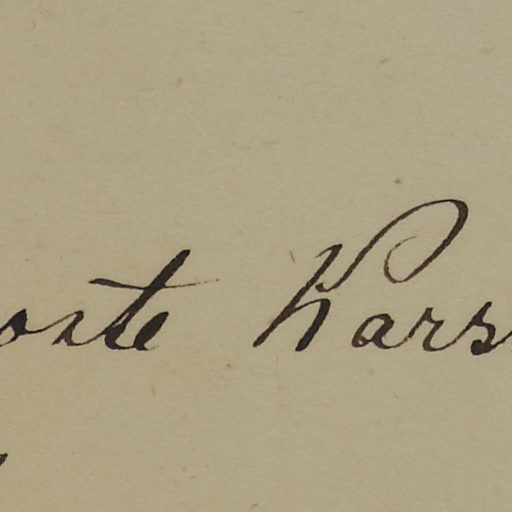 oste Kars